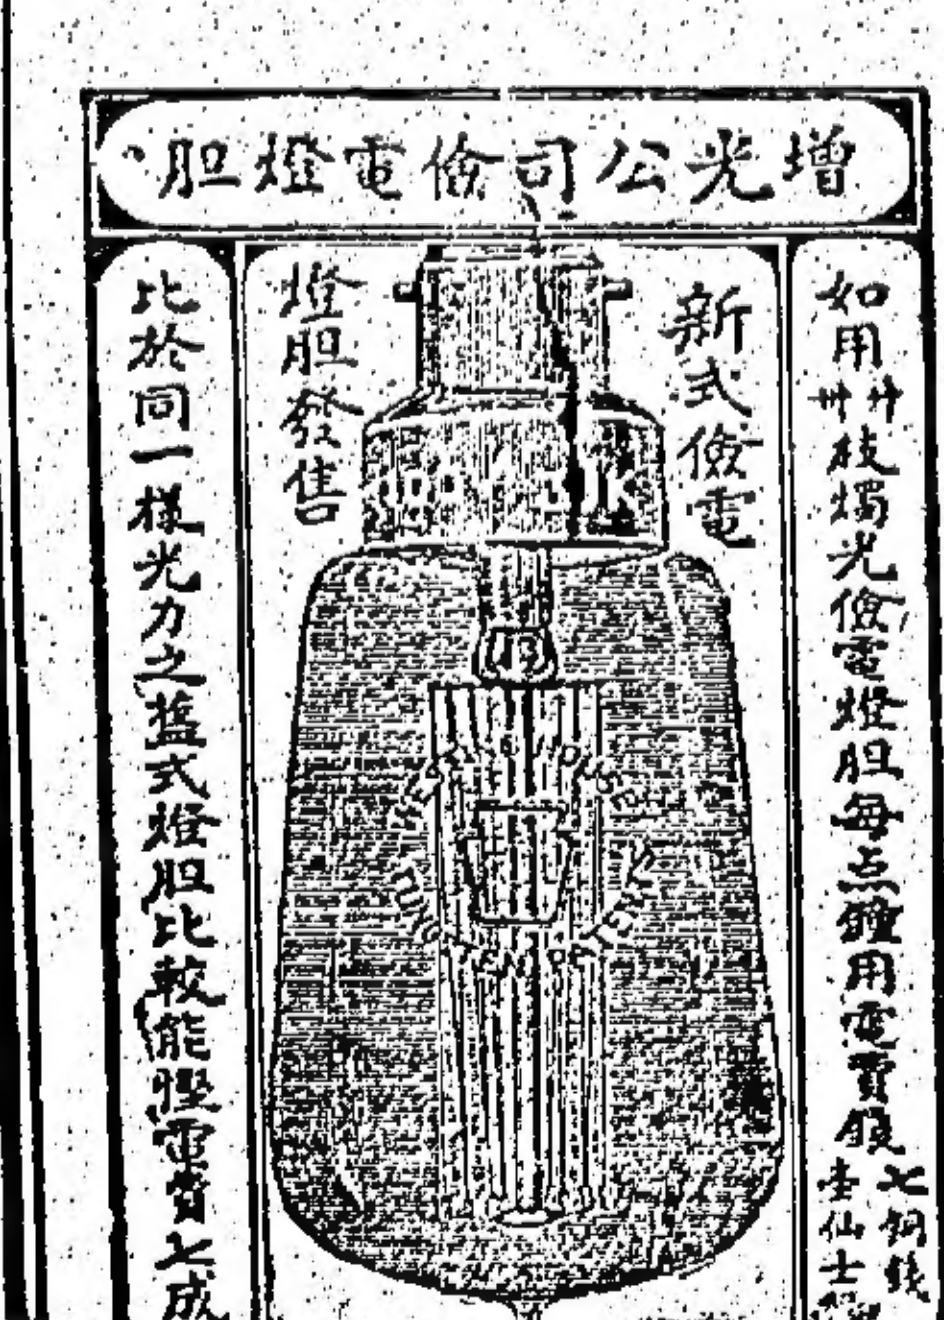 增光公司儉電燈胆
如用卅廿枝燭光儉電燈胆每点鐘用電費銀
七銅錢
壹仙士
新式儉電
燈胆發售
比於同一樣光力之藍式燈胆比較能慳電費七成